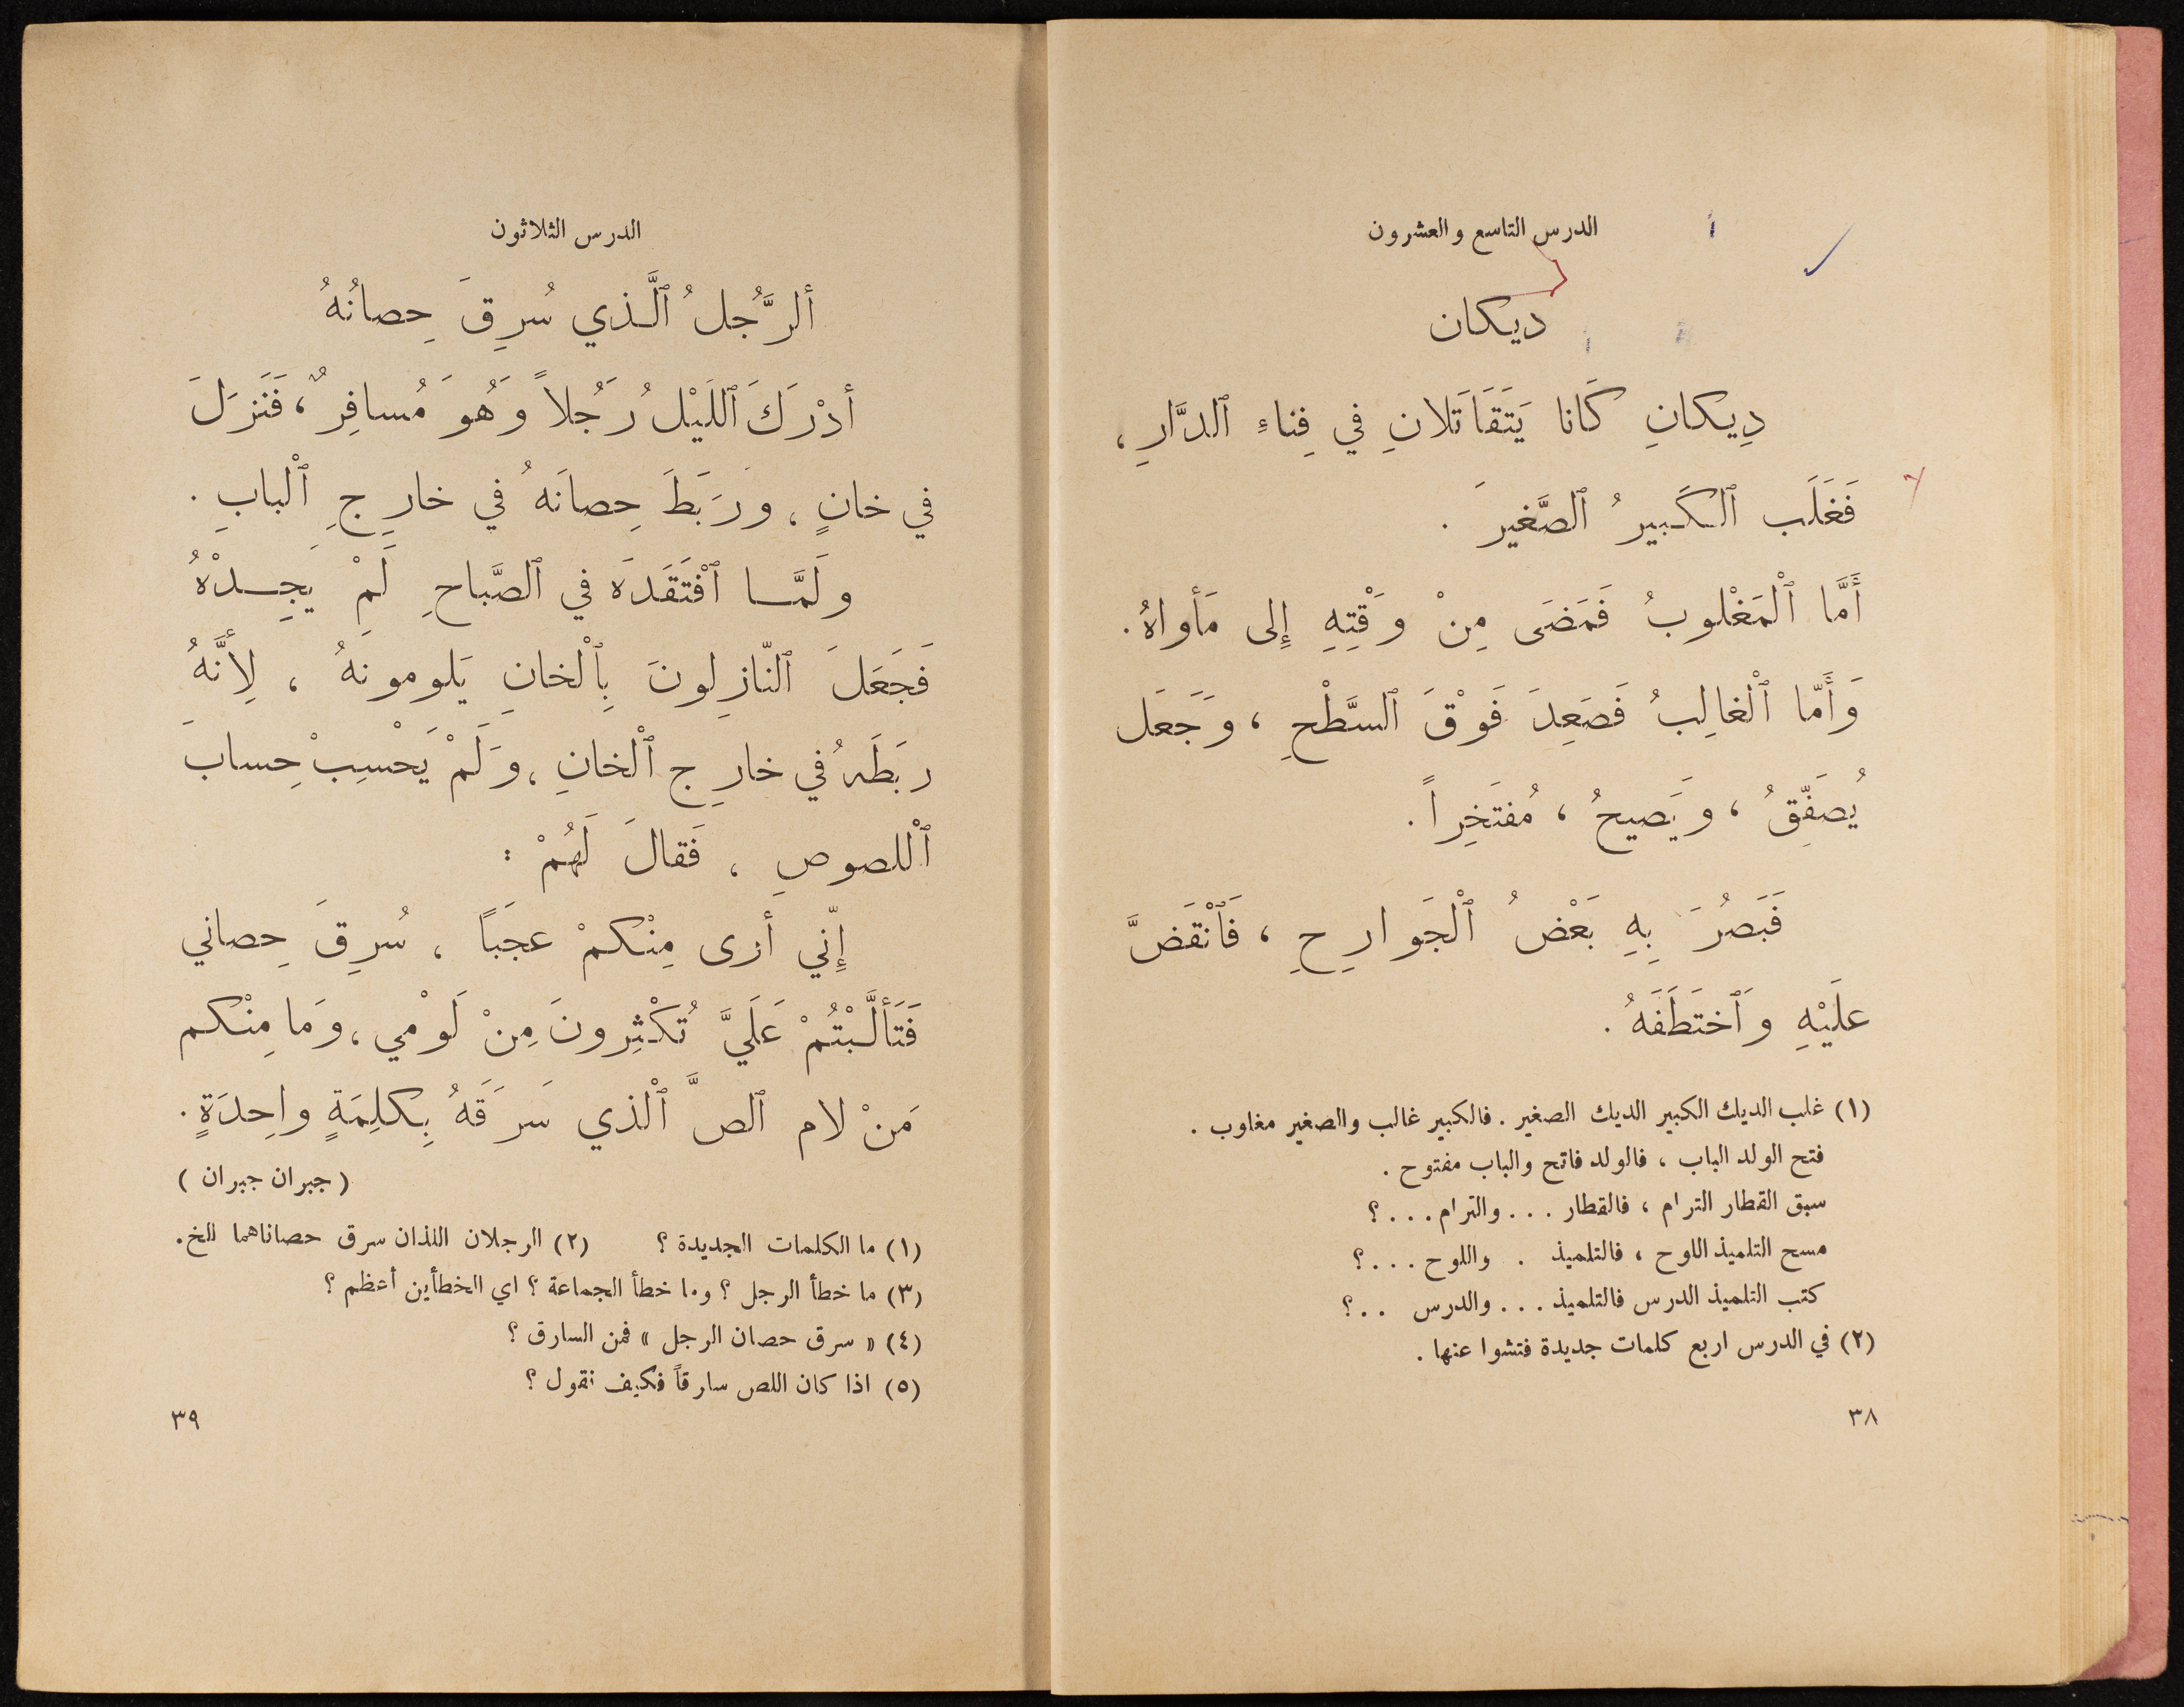 الدرس التاسع والعشرون
ديكان
دِيكانِ كَانا يَتَقَاتَلانِ في فِناءِ ٱلدَّارِ ،
فَغَلَب ٱلكَبيرُ ٱلصَّغيرَ .
أَمَّا ٱلْمَغْلوبُ فَمَضَى مِنْ وَقْتِهِ إِلى مَأواهُ .
وَأَمّا ٱلْغالِبُ فَصَعِدَ فَوْقَ ٱلسَّطْحِ ، وَجَعَل
يُصَفِّقُ ، وَيَصيحُ ، مُفتَخِراً .
فَبَصُرَ بِهِ بَعْضُ ٱلْجَوارِحِ ، فَٱنْقَضَّ
علَيْهِ وَٱختَطَفَهُ .
(١) غلب الديك الكبير الديك الصغير . فالكبير غالب والصغير مغلوب .
فتح الولد الباب ، فالولد فاتح والباب مفتوح .
سبق القطار الترام ، فالقطار . . . والترام . . . ؟
مسح التلميذ اللوح ، فالتلميذ . واللوح . . . ؟
كتب التلميذ الدرس فالتلميذ . . . والدرس . . ؟
(٢) في الدرس اربع كلمات جديدة فتشوا عنها .
٣٨
الدرس الثلاثون
ألرَّجُلُ ٱلَّذي سُرِقَ حِصانُهُ
أدْرَكَ ٱللَيْلُ رَجُلاً وَهُوَ مُسافِرٌ ، فَنَزَلَ
في خانٍ ، وَرَبَطَ حِصانَهُ في خارِجِ ٱلْبابِ .
ولَمَّا ٱفْتَقَدَه في ٱلصَّباحِ لَمْ يَجِدْهُ
فَجَعَلَ ٱلنّازِلونَ بِٱلْخانِ يَلومونَهُ ، لِأَنَّهُ
رَبَطَهُ في خارِج ٱلْخانِ ، وَلَمْ يَحْسِبْ حِسابَ
ٱلْلصوصِ ، فَقالَ لَهُمْ :
إِنّي أرى مِنْكمْ عجَبَاً ، سُرِقَ حِصاني
فَتَأَلَّبْتُمْ عَلَيَّ تُكْثِرونَ مِنْ لَوْمي ، وَمَا مِنْكم
مَنْ لام ٱلصَّ ٱلْذي سَرَقَهُ بِكلِمَةٍ واحِدَةٍ .
( جبران جبران )
(١) ما الكلمات الجديدة ؟ (٢) الرجلان اللذان سرق حصاناهما الخ .
(٣) ما خطأ الرجل ؟ وما خطأ الجماعة ؟ اي الخطأين أعظم ؟
(٤) « سرق حصان الرجل » فمن السارق ؟
(٥) اذا كان اللص سارقاً فكيف نقول ؟
٣٩